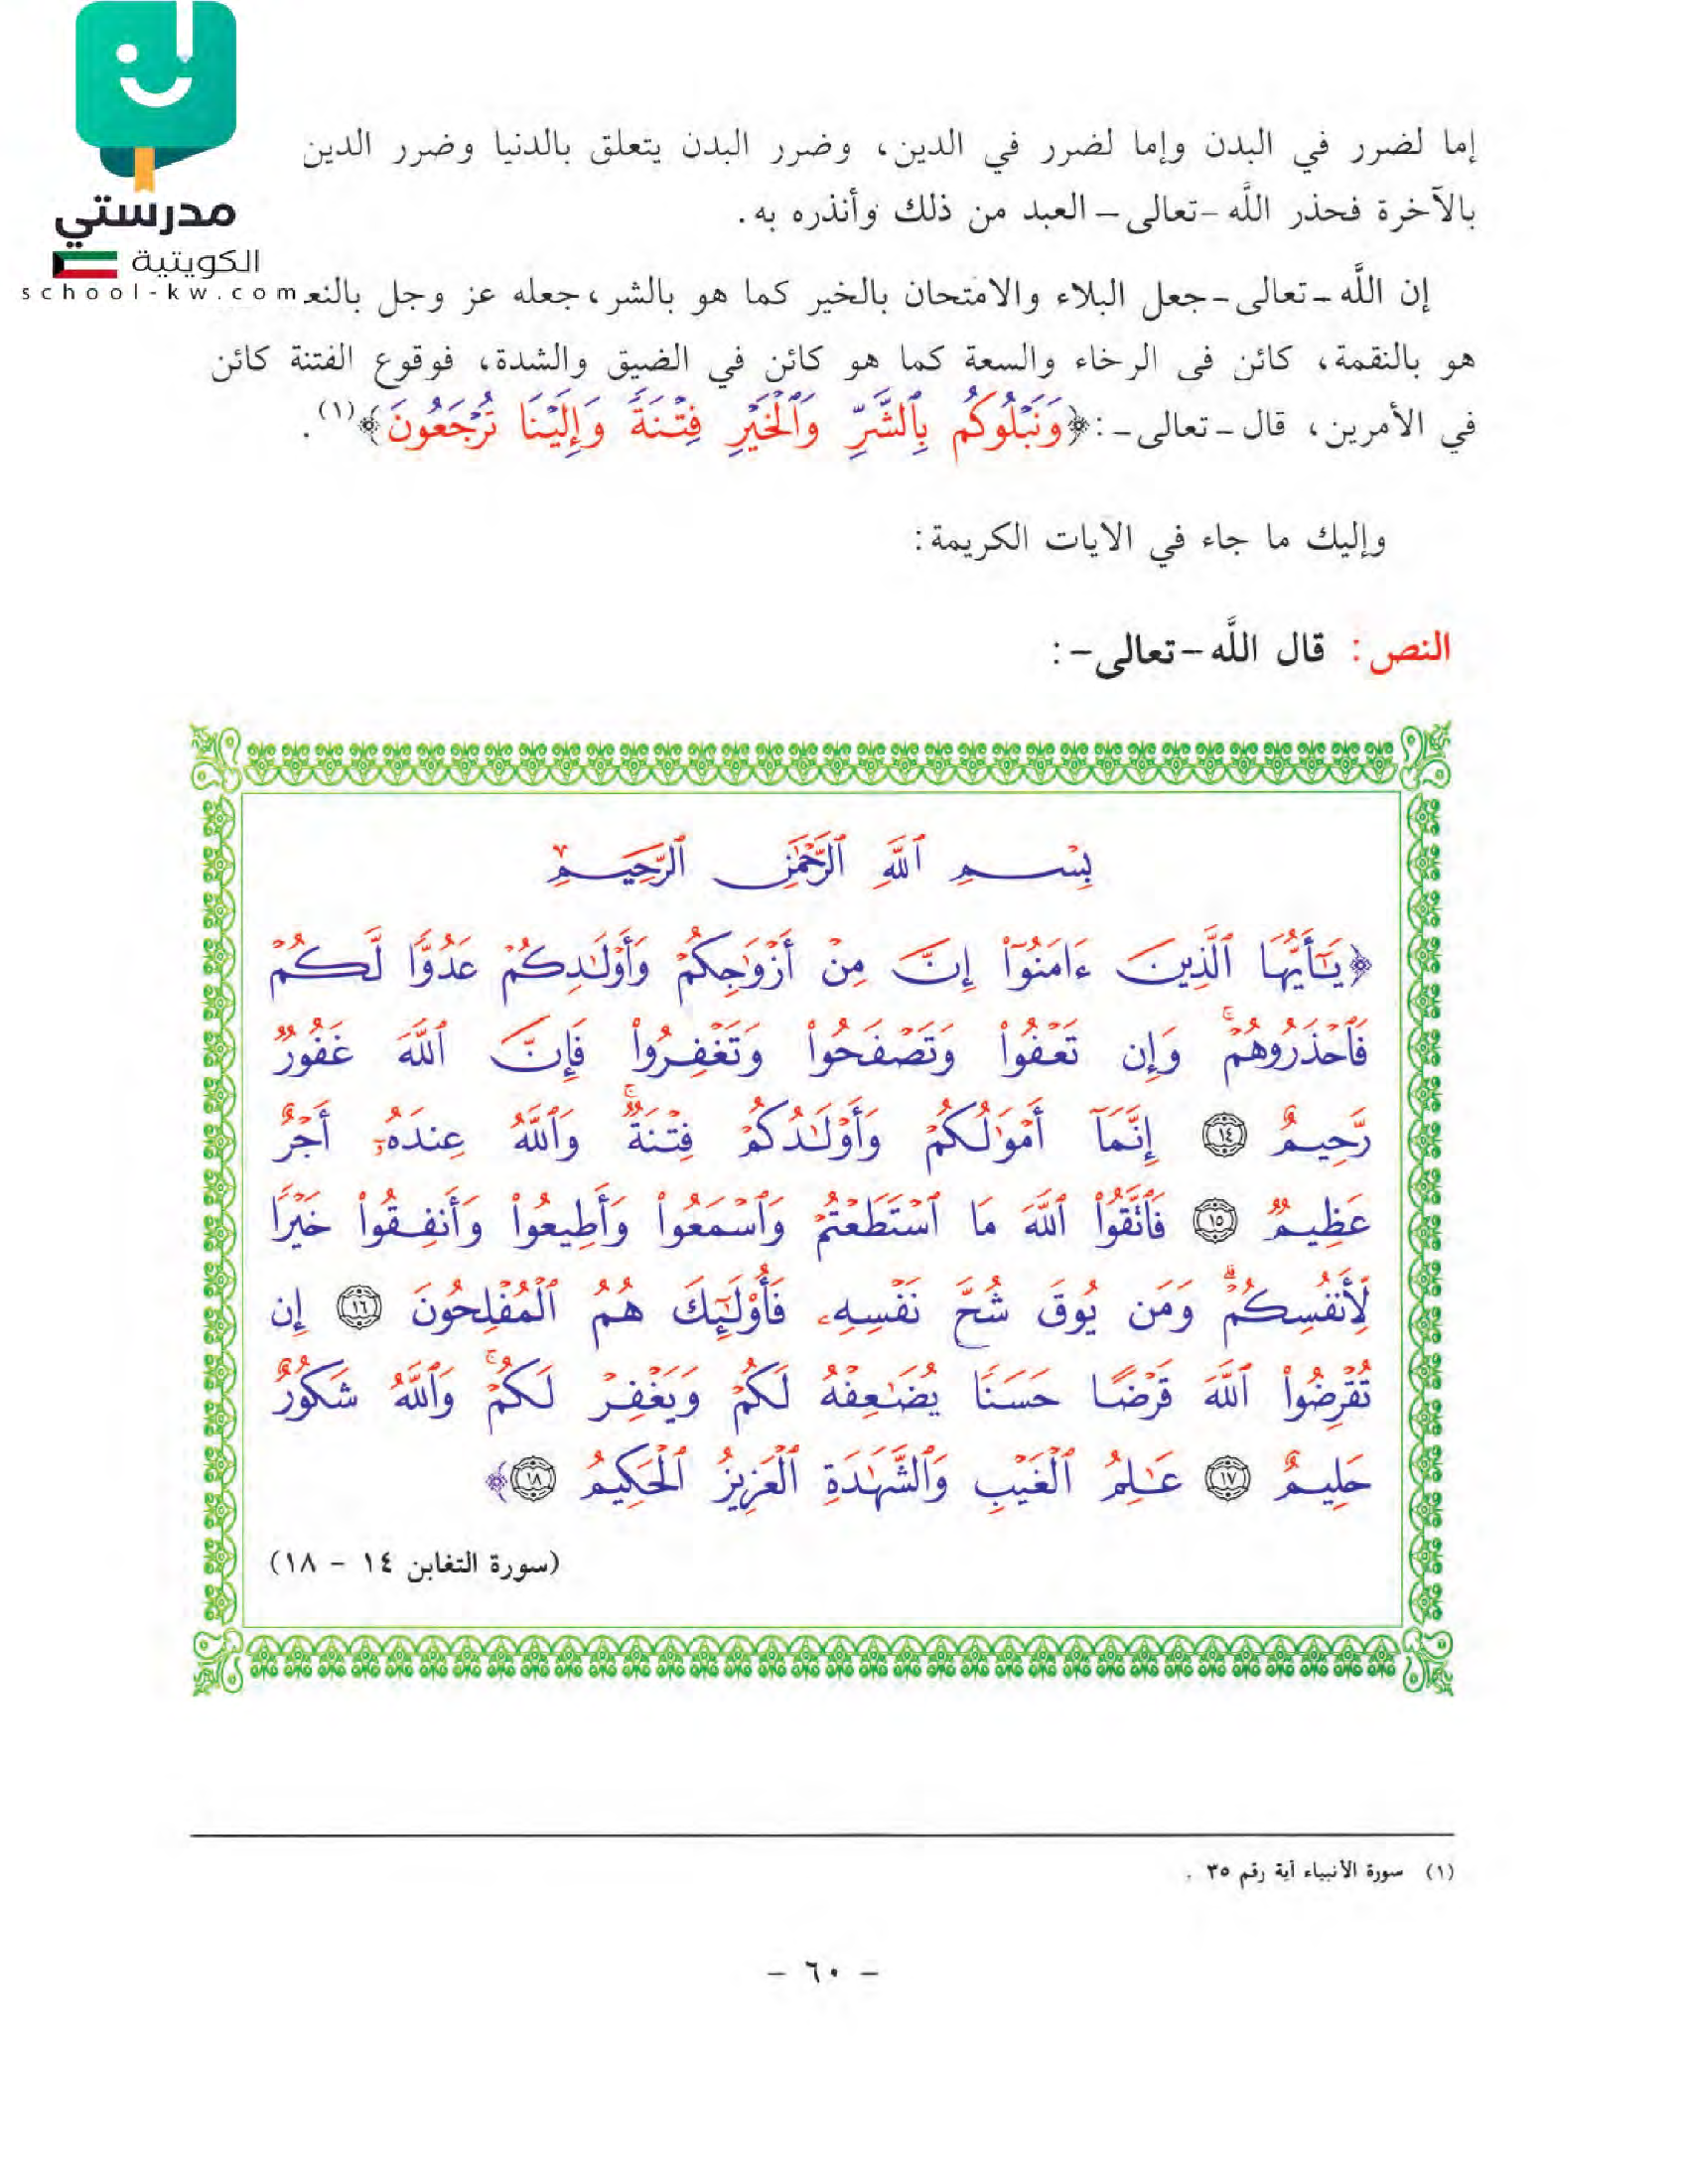 مدرستي
الكويتية
school-kw.com
إما لضرر في البدن وإما لضرر في الدين، وضرر البدن يتعلق بالدنيا وضرر الدين
بالآخرة فحذر اللَّه -تعالى- العبد من ذلك وأنذره به.
إن اللَّه -تعالى- جعل البلاء والامتحان بالخير كما هو بالشر، جعله عز وجل بالنع
هو بالنقمة، كائن فى الرخاء والسعة كما هو كائن في الضيق والشدة، فوقوع الفتنة كائن
في الأمرين، قال -تعالى-: ﴿وَنَبۡلُوكُم بِٱلشَّرِّ وَٱلۡخَيۡرِ فِتۡنَةٗ وَإِلَيۡنَا تُرۡجَعُونَ﴾(١).
وإليك ما جاء في الايات الكريمة:
النص: قال اللَّه -تعالى-:
بِسۡمِ ٱللَّهِ ٱلرَّحۡمَٰنِ ٱلرَّحِيمِ
﴿يَٰٓأَيُّهَا ٱلَّذِينَ ءَامَنُوٓاْ إِنَّ مِنۡ أَزۡوَٰجِكُمۡ وَأَوۡلَٰدِكُمۡ عَدُوّٗا لَّكُمۡ
فَٱحۡذَرُوهُمۡۚ وَإِن تَعۡفُواْ وَتَصۡفَحُواْ وَتَغۡفِرُواْ فَإِنَّ ٱللَّهَ غَفُورٞ
رَّحِيمٌ ١٤ إِنَّمَآ أَمۡوَٰلُكُمۡ وَأَوۡلَٰدُكُمۡ فِتۡنَةٞۚ وَٱللَّهُ عِندَهُۥٓ أَجۡرٌ
عَظِيمٞ ١٥ فَٱتَّقُواْ ٱللَّهَ مَا ٱسۡتَطَعۡتُمۡ وَٱسۡمَعُواْ وَأَطِيعُواْ وَأَنفِقُواْ خَيۡرٗا
لِّأَنفُسِكُمۡۗ وَمَن يُوقَ شُحَّ نَفۡسِهِۦ فَأُوْلَٰٓئِكَ هُمُ ٱلۡمُفۡلِحُونَ ١٦ إِن
تُقۡرِضُواْ ٱللَّهَ قَرۡضًا حَسَنٗا يُضَٰعِفۡهُ لَكُمۡ وَيَغۡفِرۡ لَكُمۡۚ وَٱللَّهُ شَكُورٌ
حَلِيمٌ ١٧ عَٰلِمُ ٱلۡغَيۡبِ وَٱلشَّهَٰدَةِ ٱلۡعَزِيزُ ٱلۡحَكِيمُ ١٨﴾
(سورة التغابن ١٤ - ١٨)
(١) سورة الأنبياء آية رقم ٣٥ .
- ٦٠ -